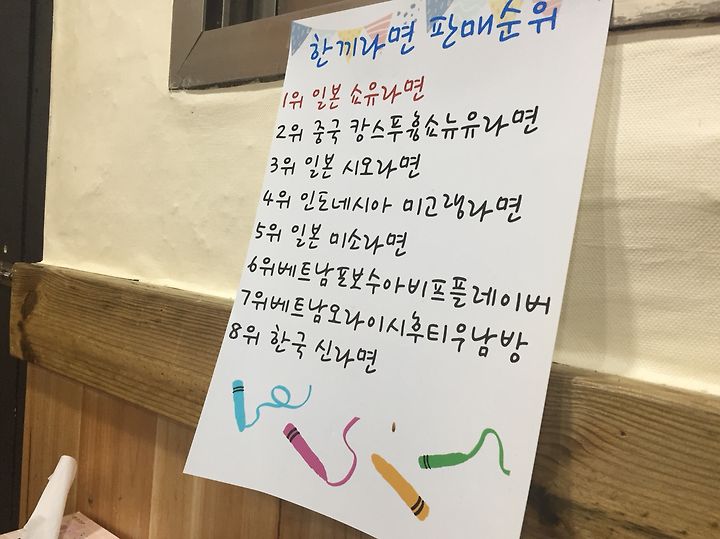 한끼라면 판매순위
1위 일본 쇼유라면
2위 중국 캉스푸홍쇼뉴유라면
3위 일본 시오라면
4위 인도네시아 미고랭라면
5위 일본 미소라면
6위베트남포보수아비프플레이버
7위베트남오라이시후티우남방
8위 한국 신라면